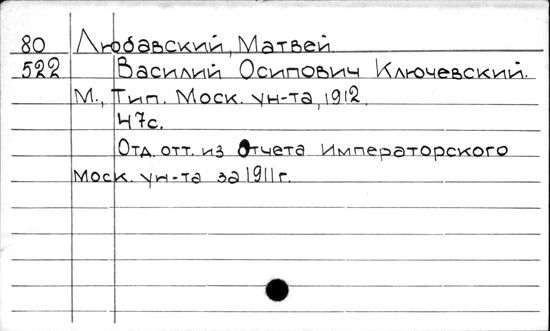 80 Любавский, Матвей
522 Василий Осипович Ключевский.
М., Тип. Моск. ун-та, 1912.
47с.
Отд. отт. из Отчета Императорского
Моск. ун-та за 1911 г.